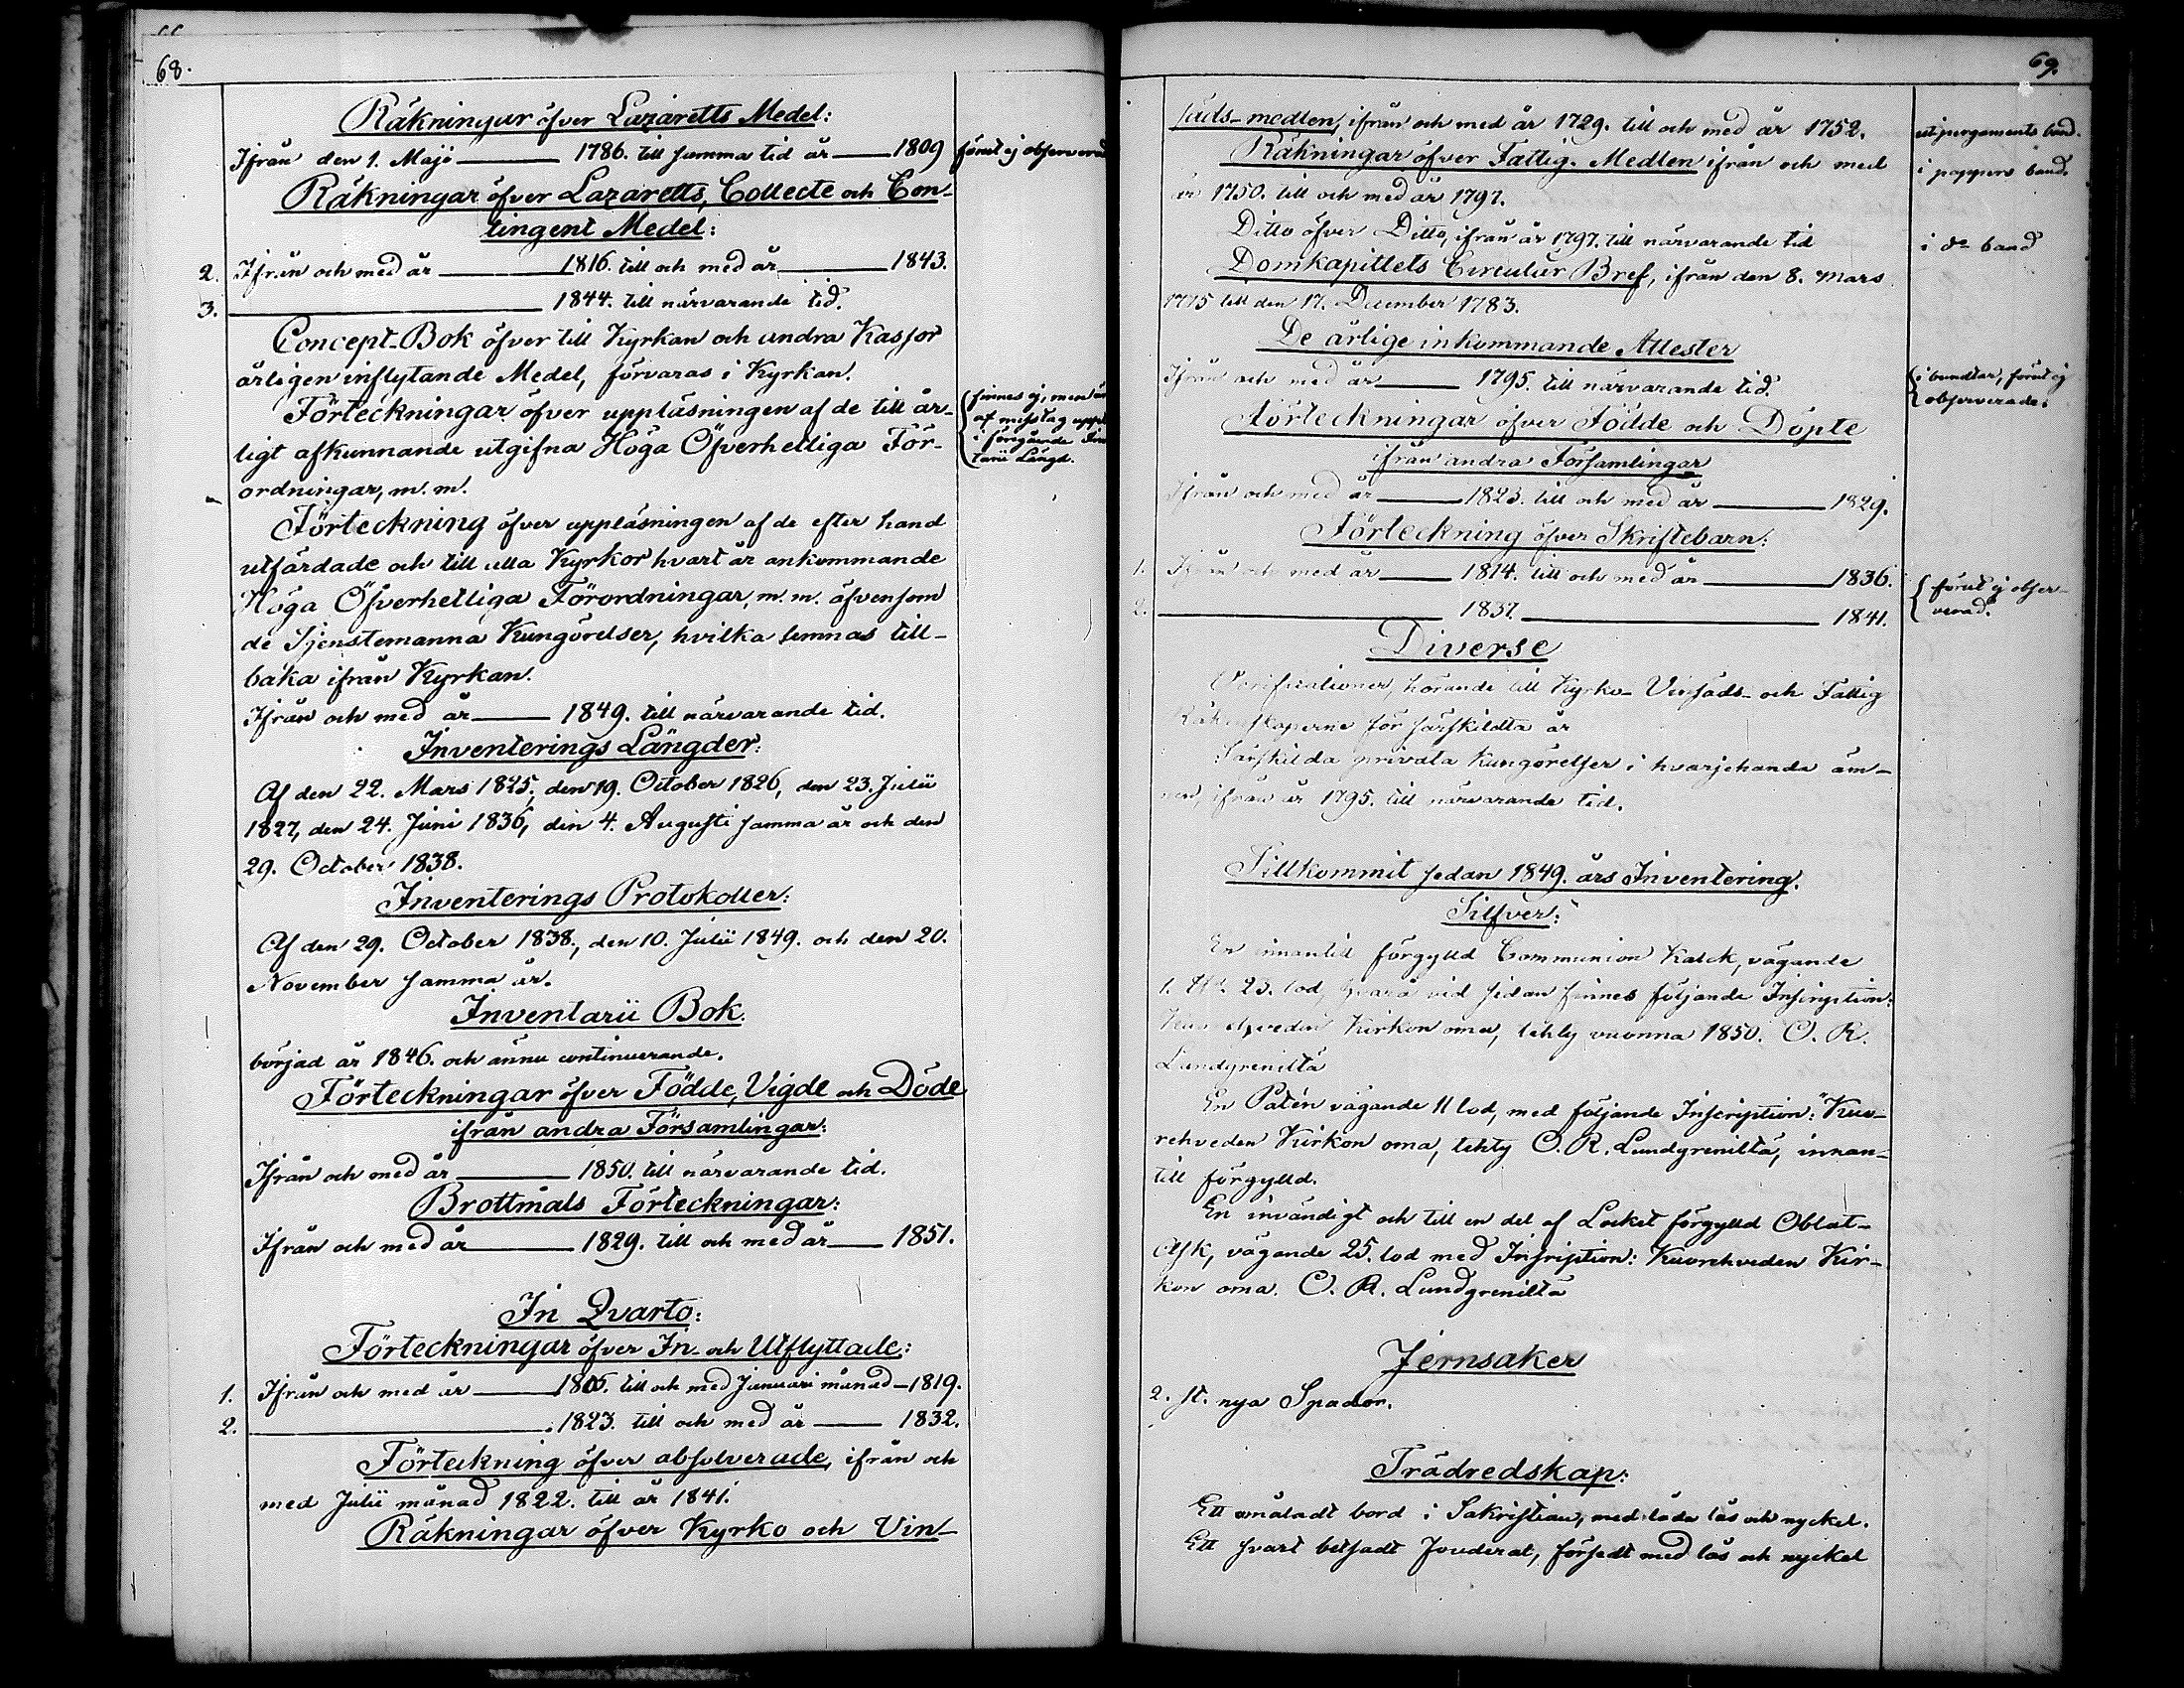 68.
Räkningar öfver Lazaretts Medel:
Ifrån den 1. Maji — 1786. till samma tid år — 1809
förut ej observerad
Räkningar öfver Lazaretts, Collecte och Con-
tingent Medel:
2. Ifrån och med år — 1816. till och med år — 1843.
3. — 1844. till närvarande tid.
Concept-Bok öfver till Kyrkan och andra Kassor
årligen inflytande Medel, förvaras i Kyrkan.
Förteckningar öfver uppläsningen af de till år-
ligt afkunnande utgifna Höga Öfverhetliga För-
ordningar, m. m.
finnes ej, men
af misstag
i föregående
tarii Längd.
Förteckning öfver uppläsningen af de efter hand
utfärdade och till alla Kyrkor hvart år ankommande
Höga Öfverhetliga Förordningar, m. m. äfvensom
de Tjenstemanna Kungörelser, hvilka lemnas till-
baka ifrån Kyrkan.
Ifrån och med år — 1849. till närvarande tid.
Inventerings Längder:
Af den 22. Mars 1825, den 19. October 1826, den 23. Julii
1827, den 24. Juni 1836, den 4. Augusti samma år och den
29. October 1838.
Inventerings Protokoller:
Af den 29. October 1838, den 10. Julii 1849. och den 20.
November samma år.
Inventarii Bok.
börjad år 1846. och ännu continuerande.
Förteckningar öfver Födde, Vigde och Döde
ifrån andra Församlingar:
Ifrån och med år — 1850. till närvarande tid.
Brottmåls Förteckningar:
Ifrån och med år — 1829. till och med år — 1851.
In Qvarto:
Förteckningar öfver In- och Utflyttade:
1. Ifrån och med år — till och med Januari månad — 1819.
2. — 1823. till och med år — 1832.
Förteckning öfver absolverade, ifrån och
med Julii månad 1822. till år 1841.
Räkningar öfver Kyrko och Vin-
69.
säds-medlen, ifrån och med år 1729. till och med år 1752.
i pergaments band.
Räkningar öfver Fattig-Medlen ifrån och med
år 1750. till och med år 1797.
i pappers band.
Ditto öfver Ditto, ifrån år 1797. till närvarande tid
i do band
Domkapitlets Circulär Bref, ifrån den 8. Mars
1775 till den 17. December 1783.
De årlige inkommande Attester
Ifrån och med år — 1795. till närvarande tid.
i bundtar, förut ej
observerade.
Förteckningar öfver Födde och Döpte
ifrån andra Församlingar
Ifrån och med år — 1823. till och med år — 1829.
Förteckning öfver Skriftebarn:
1. Ifrån och med år — 1814. till och med år — 1836.
2. — 1837. — 1841.
förut ej obser-
verad.
Diverse
Verificationer, hörande till Kyrko- Vinsäds- och Fattig
Räkenskaperne för särskildta år
Särskilda privata Kungörelser i hvarjehanda äm-
nen, ifrån år 1795. till närvarande tid.
Tillkommit sedan 1849. års Inventering.
Silfver:
En innantill förgylld Communion Kalck, vägande
1. 23. lod, å vid sedan finnes följande Inscription:
Kirkon oma, tehty vuonna 1850. O. R.
Lundgreniltä
En Patén vägande 11 lod, med följande Inscription: "Kuo-
rehveden Kirkon oma, tehty O. R. Lundgreniltä, innan-
till förgylld.
En invändigt och till en del af Locket förgylld Oblat-
Ask, vägande 25. lod med Inscription: Kuorehveden Kir-
kon oma. O. R. Lundgreniltä
Jernsaker
2. st. nya Spador.
Trädredskap:
Ett omåladt bord i Sakristian, med låda lås och nyckel.
Ett svart betsadt Fouderal, försedt med lås och nyckel